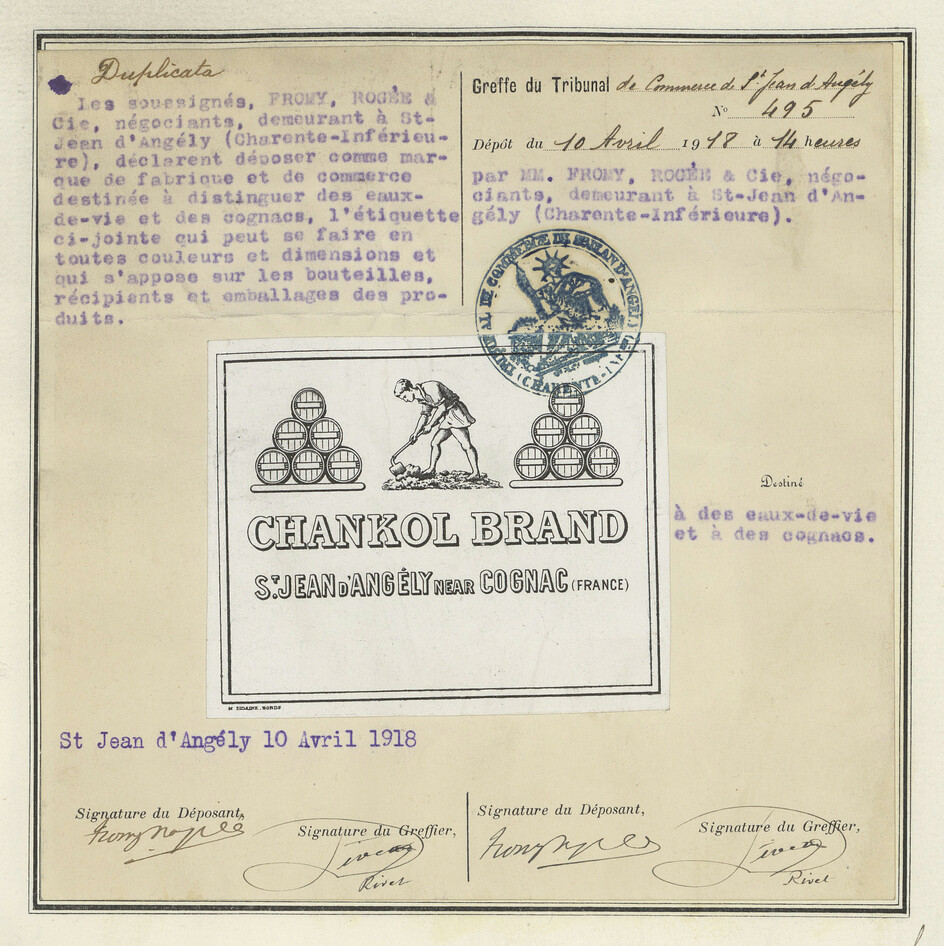 Duplicata
Les soussignés, FROMY, ROGÉE &
Cie, négociants, demeurant à St-
Jean d'Angély (Charente-Inférieu-
re), déclarent déposer comme mar-
que de fabrique et de commerce
destinée à distinguer des eaux-
de-vie et des cognacs, l'étiquette
ci-jointe qui peut se faire en
toutes couleurs et dimensions et
qui s'appose sur les bouteilles,
récipients et emballages des pro-
duits.
Greffe du Tribunal de Commerce de St Jean d'Angély
N° 495
Dépôt du 10 Avril 1918 à 14 heures
par MM. FROMY, ROGÉE & Cie, négo-
ciants, demeurant à St-Jean d'An-
gély (Charente-Inférieure).
TRIBUNAL DE COMMERCE DE ST JEAN D'ANGELY
(CHARENTE-INF
CHANKOL BRAND
ST. JEAN D'ANGÉLY NEAR COGNAC (FRANCE)
Destiné
à des eaux-de-vie
et à des cognacs.
St Jean d'Angély 10 Avril 1918
Signature du Déposant,
Signature du Greffier,
Rivet
Signature du Déposant,
Signature du Greffier,
Rivet